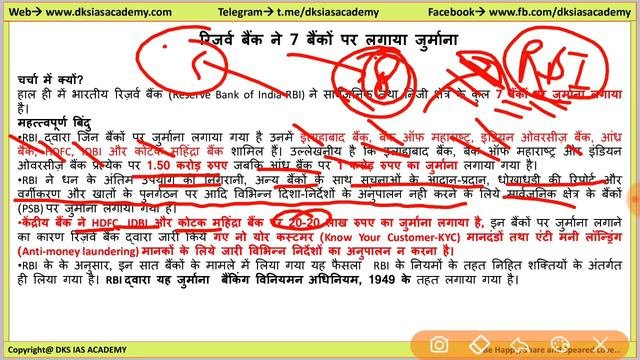 Web→ www.dksiasacademy.com Telegram→ t.me/dksiasacademy Facebook→ www.fb.com/dksiasacademy
रिजर्व बैंक ने 7 बैंकों पर लगाया जुर्माना
RBI
चर्चा में क्यों?
हाल ही में भारतीय रिज़र्व बैंक (Reserve Bank of India-RBI) ने सार्वजनिक तथा निजी क्षेत्र के कुल 7 बैंकों पर जुर्माना लगाया
है।
महत्त्वपूर्ण बिंदु
•RBI द्वारा जिन बैंकों पर जुर्माना लगाया गया है उनमें इलाहाबाद बैंक, बैंक ऑफ महाराष्ट्र, इंडियन ओवरसीज़ बैंक, आंध्र
बैंक, HDFC, IDBI और कोटक महिंद्रा बैंक शामिल हैं। उल्लेखनीय है कि इलाहाबाद बैंक, बैंक ऑफ महाराष्ट्र और इंडियन
ओवरसीज़ बैंक प्रत्येक पर 1.50 करोड़ रुपए जबकि आंध्र बैंक पर 1 करोड़ रुपए का जुर्माना लगाया गया है।
•RBI ने धन के अंतिम उपयोग की निगरानी, अन्य बैंकों के साथ सूचनाओं के आदान-प्रदान, धोखाधड़ी की रिपोर्ट और
वर्गीकरण और खातों के पुनर्गठन पर आदि विभिन्न दिशा-निर्देशों के अनुपालन नही करने के लिये सार्वजनिक क्षेत्र के बैंकों
(PSB) पर जुर्माना लगाया गया है।
•केंद्रीय बैंक ने HDFC, IDBI और कोटक महिंद्रा बैंक पर 20-20 लाख रुपए का जुर्माना लगाया है, इन बैंकों पर जुर्माना लगाने
का कारण रिज़र्व बैंक द्वारा जारी किये गए नो योर कस्टमर (Know Your Customer-KYC) मानदंडों तथा एंटी मनी लॉन्ड्रिंग
(Anti-money laundering) मानकों के लिये जारी विभिन्न निर्देशों का अनुपालन न करना है।
•RBI के के अनुसार, इन सात बैंकों के मामले में लिया गया यह फैसला RBI के नियमों के तहत निहित शक्तियों के अंतर्गत
ही लिया गया है। RBI द्वारा यह जुर्माना बैंकिंग विनियमन अधिनियम, 1949 के तहत लगाया गया है।
Copyright@ DKS IAS ACADEMY Be Happy, Share and Speared Love...